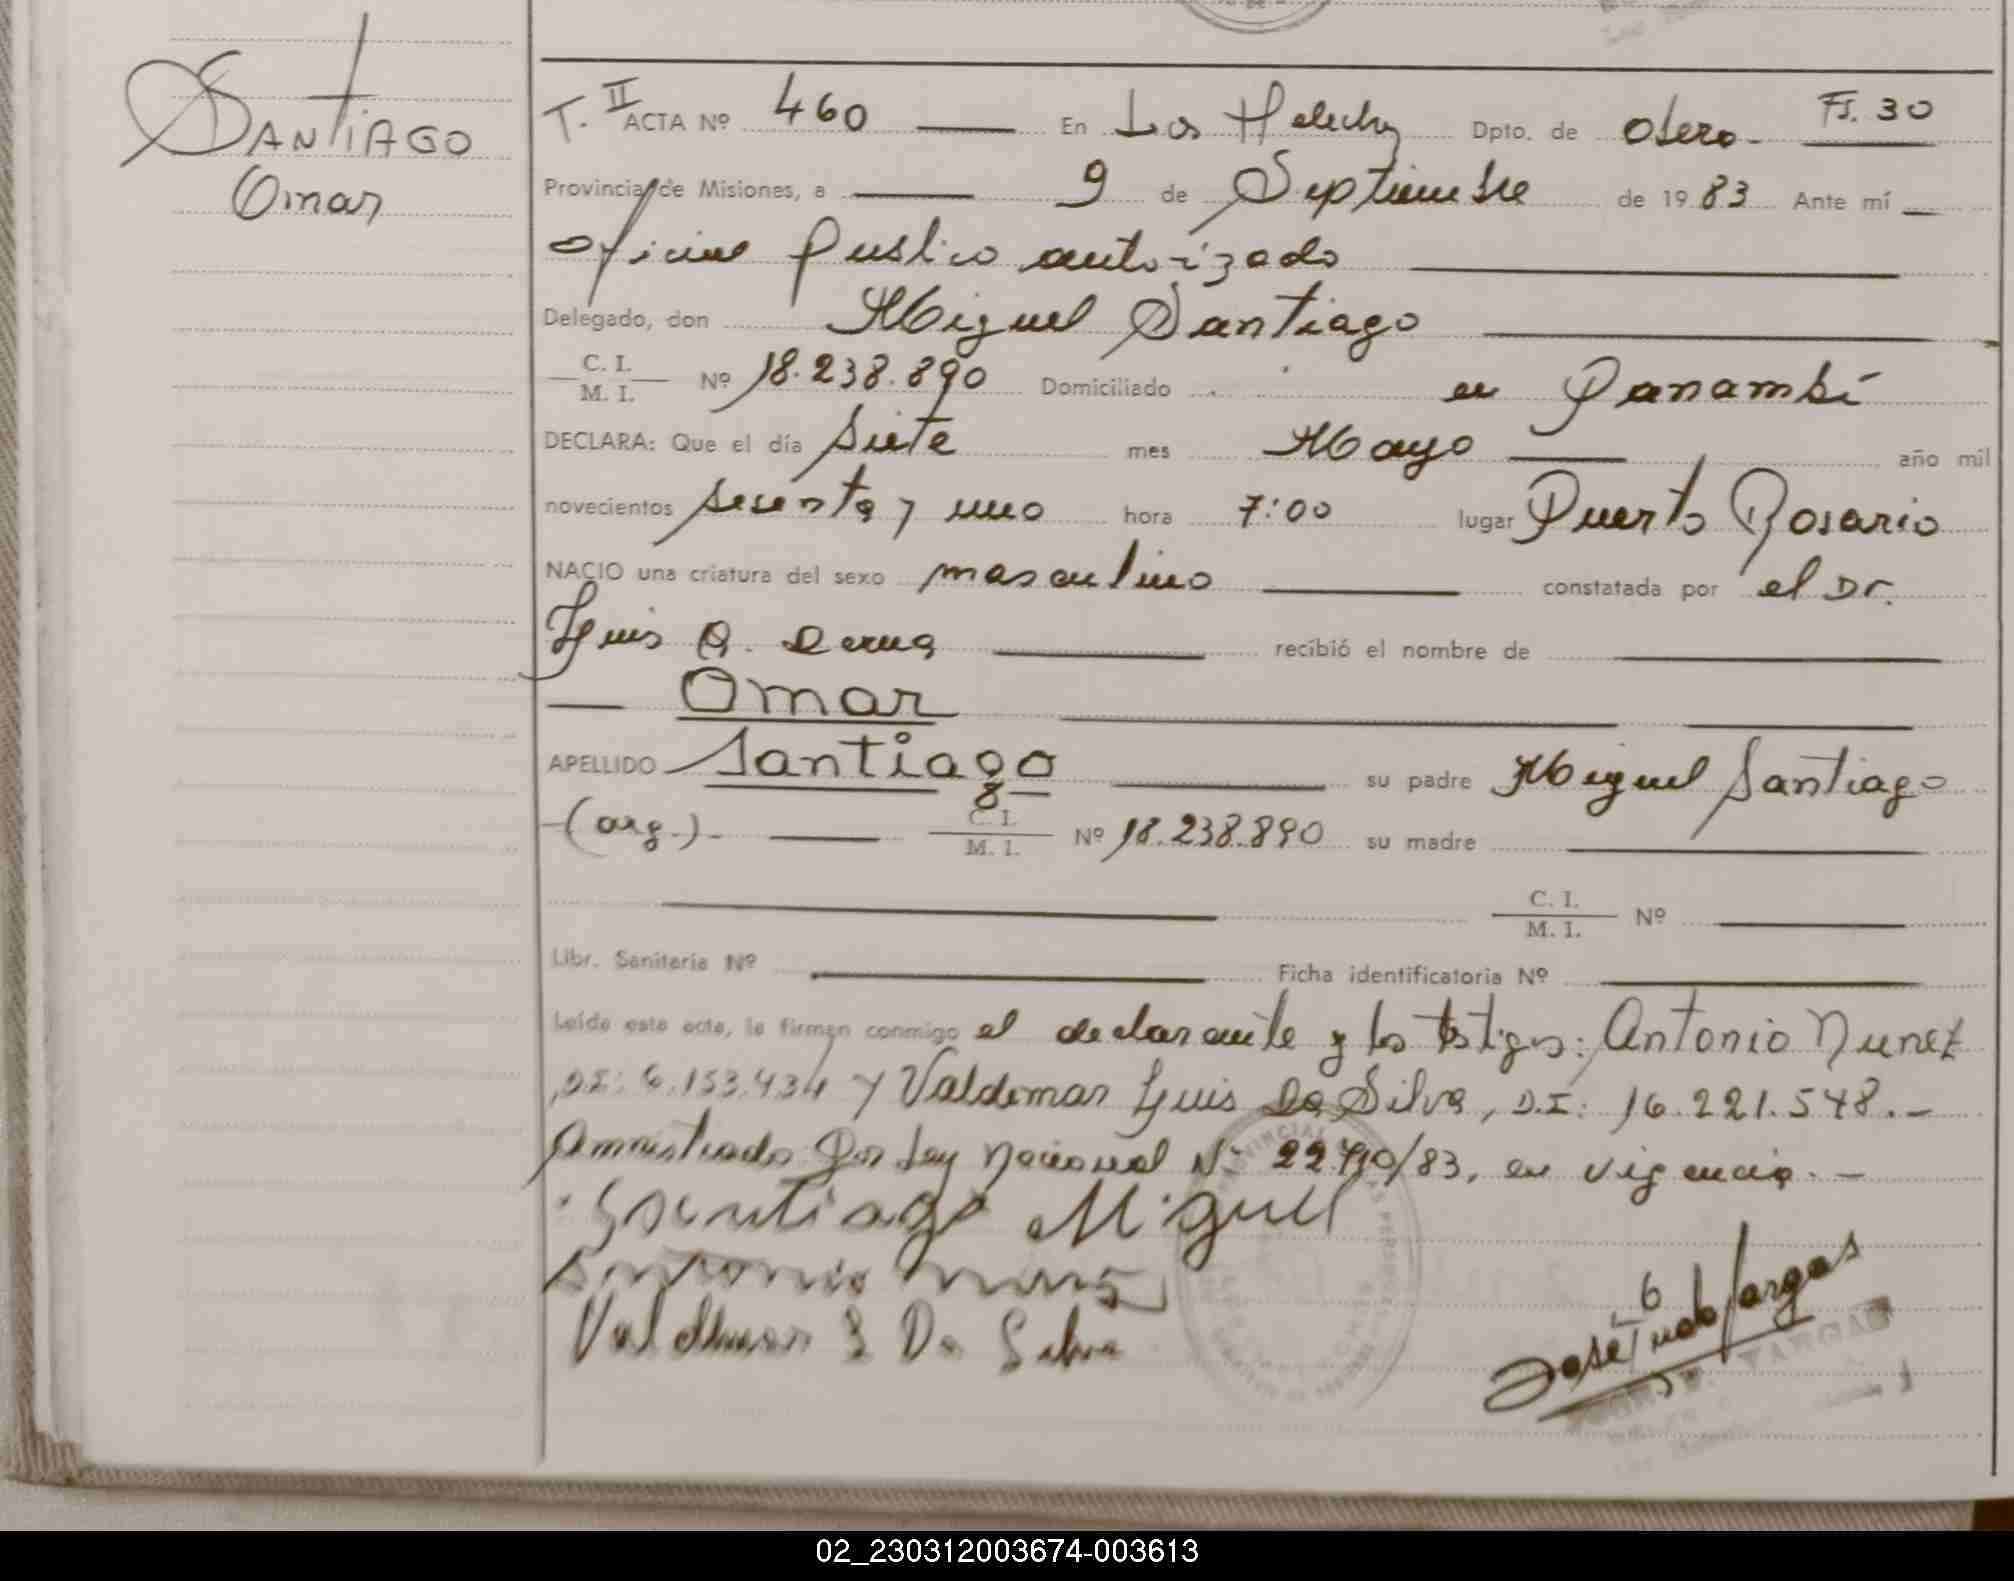 SANTIAGO
Omar
T. II ACTA Nº 460 En Los Helechos Dpto. de Obero- Fs. 30
Provincia de Misiones, a 9 de Septiembre de 1983 Ante mí
oficial Publico autorizado
Delegado, don Miguel Santiago
C. I. M. I. Nº 18.238.890 Domiciliado en Panambí
DECLARA: Que el día siete mes Mayo año mil
novecientos sesenta y uno hora 7:00 lugar Puerto Rosario
NACIO una criatura del sexo masculino constatada por el Dr.
Luis A. recibió el nombre de
Omar
APELLIDO Santiago su padre Miguel Santiago
(arg.)- C. I. M. I. Nº 18.238.890 su madre
C. I. M. I. Nº
Libr. Sanitaria Nº Ficha identificatoria Nº
Leída esta acta, la firman conmigo el declarante y los testigos: Antonio Nunez
D.I: 6.153.434 y Valdemar Luis Da Silva, D.I: 16.221.548.-
Amnistiado Por Ley Nacional Nº /83, en vigencia.-
Santiago Miguel
Valdemar L Da Silva
José Vargas
VARGAS
02_230312003674-003613